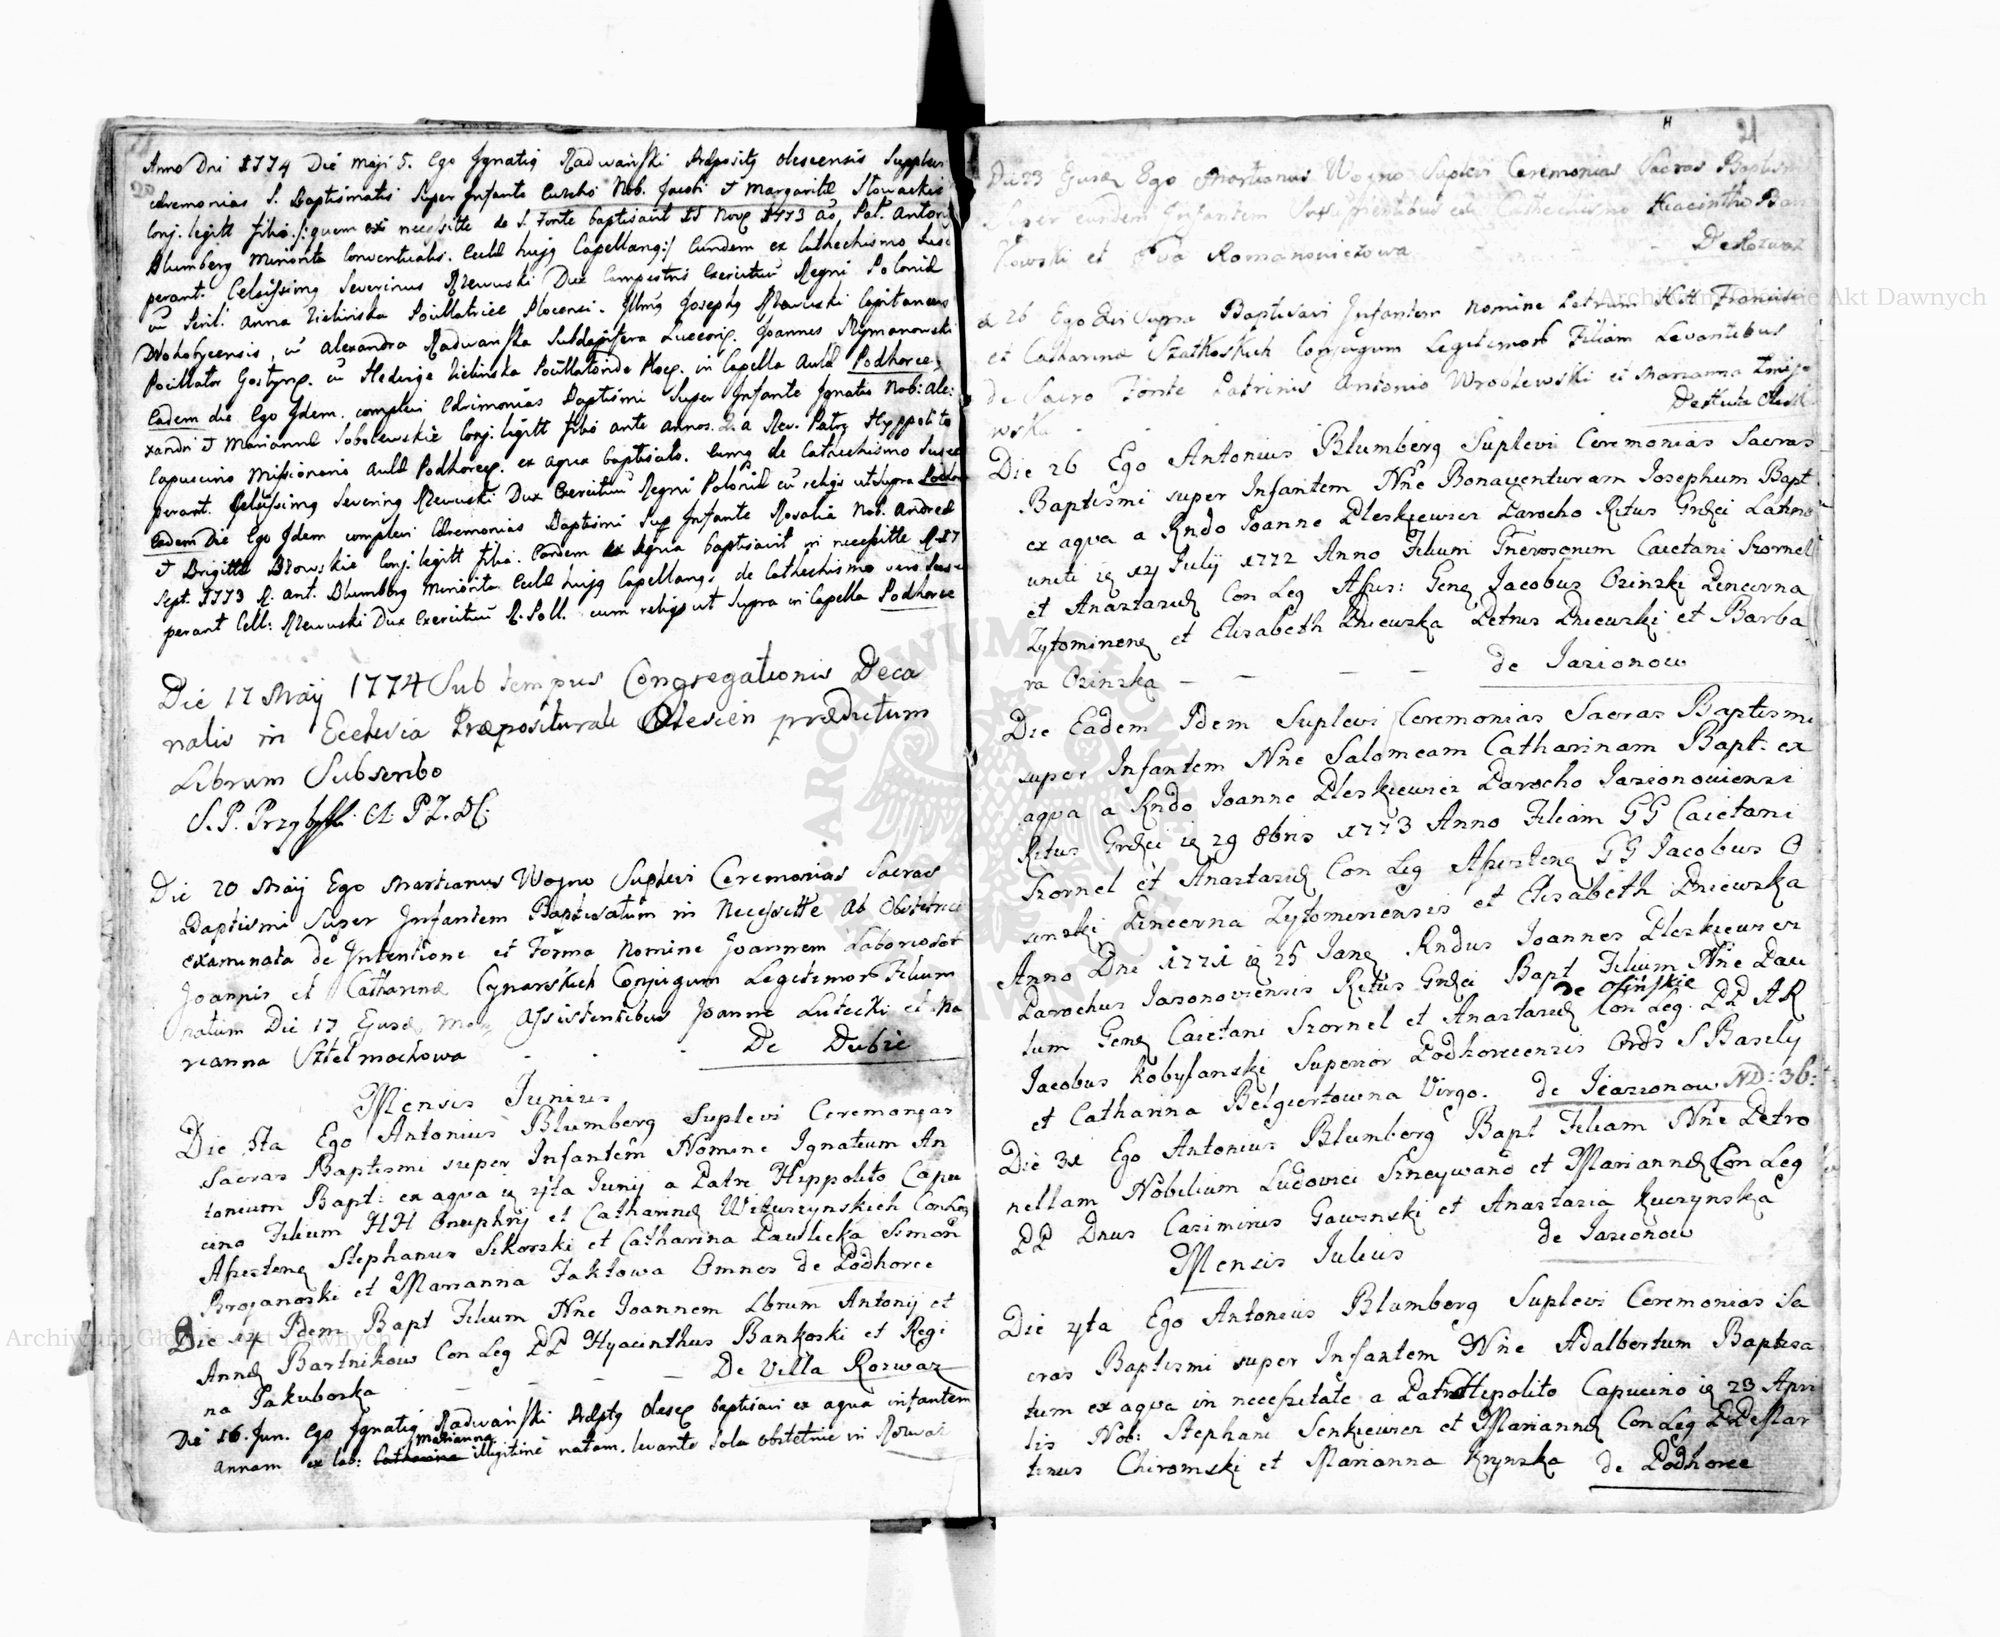 20
Anno Dni 1774 Die Maji 5. Ego Ignatiq Radwański Præpositq olescensis Supplevi
cæremonias S. Baptismatis super Infante Eustcho Nob. Jacobi et Margaritæ Słowackie
Conj. legitt filio /: quem ex necessitte de S. Fonte baptisavit 15 Nov. 1773 ao, Pat. Antoni
Blumberg Minorita Conventualis. Eccllæ hujq Capellanq :/ Eundem ex Cathechismo susce
perant. Celsissimq Severinus Rzewuski Dux Campestris Exercituũ Regni Poloniæ
cũ Anna Zielińska Pocillatrice Plocensi. Illmq Josephq Rzewuski Capitaneus
Drohobycensis, cũ Alexandra Radwańska Subdapifera Luceori. Joannes Szymanowski
Pocillator Gostyn. cũ Hedvige Zielińska Pocillatoride Ploc. in Capella Aulæ Podhorce
Eadem die Ego Idem complevi Cærimonias Baptismi super Infante Ignatio Nob: Ale:
xandri et Mariannæ Sobolewskie Conj. legitt filio ante annos 2. a Rev. Patre Hyppolito
Capucino Missionario Aulæ Podhorc. ex aqua baptisato. Eumq de Cathechismo susce
perant. Celsissimq Severinq Rzewuski Dux Exercituũ Regni Poloniæ cũ reliqis ut supra Podhor
Eadem Die Ego Idem complevi Cæremonias Baptismi Sup Infante Rosalia Nob. Andreæ
et Brigittæ Brzowskie Conj. legitt filia. Eandem ex aqua baptisavit in necessitte 17
Sept. 1773 R. Ant. Blumberg Minorita Eccllæ hujq Capellanq, de Cathechismo vero susce
perant Cell: Rzewuski Dux Exercituũ R. Poll. cum reliqis ut supra in Capella Podhorce
Die 17 Maij 1774 Sub tempus Congregationis Deca
nalis in Ecclesia Præpositurali Olescien prædictum
Librum Subscribo
S. P. Przybył.
Die 20 Maij Ego Martianus Woyno Suplevi Ceremonias Sacras
Baptismi Super Infantem Baptisatum in Necessitte Ab Obstetrice
examinata de Intentione et Forma Nomine Joannem Laborioso
Joannis et Catharinæ Cynarskich Conjugum Legitimor Filium
natum Die 17 Ejusd May Assistentibus Joanne Lutecki et Ma
rianna Sztelmachowa - - - De Dubie
Mensis Junius
Die 5ta Ego Antonius Blumberg Suplevi Ceremonias
Sacras Baptismi super Infantem Nomine Ignatium An
tonium Bapt: ex aqva 4ta Junij a Patre Hyppolito Capu
cino Filium HH Onuphrij et Catharinæ Wituszynskich Con Leg
Assisten Stephanus Sikorski et Catharina Pawlicka Simon
Brojanoski et Marianna Faktowa Omnes de Podhorce
Die 14 Idem Bapt Filium Nne Joannem Lbrum Antonij et
Annæ Bartnikow Con Leg PP Hyacinthus Bankoski et Regi
na Jakuboska - - - De Villa Rozwaz
Die 16. Jun. Ego Ignatiq Radwański Præptq Oles baptisavi ex aqua infantem
Annam ex lab: Catharina Marianna illegitimè natam. levante sola obstetrice in Rozwaz
21
Die 23 Ejusd Ego Martianus Woyno Suplevi Ceremonias Sacras Baptism
Super eundem Infantem Suscipientibus Cathechismo Hiacintho Ban
kowski et Eva Romanowiczowa - - De Rozwaz
26 Ego Qui Supra Baptisavi Infantem Nomine Petrum HH Francisci
et Catharinæ Szatkoskich Conjugum Legitimor Filium Levantibus
de Sacro Fonte Patrinis Antonio Wroblewski et Marianna Zmije
wska - De Huta
Die 26 Ego Antonius Blumberg Suplevi Ceremonias Sacras
Baptismi super Infantem Nne Bonaventuram Josephum Bapt
ex aqva a Rndo Joanne Pleszkiewicz Parocho Ritus Græci Latino
uniti 14 Julij 1772 Anno Filium Gnerosorum Caietani Szornel
et Anastasiæ Con Leg Assis: Gen Jacobus Osinski Pincerna
Zytominen et Elisabeth Pniewska Petrus Pniewski et Barba
ra Osinska - - - - de Jasionow
Die Eadem Idem Suplevi Ceremonias Sacras Baptismi
super Infantem Nne Salomeam Catharinam Bapt. ex
aqva a Rndo Joanne Pleszkiewicz Parocho Jasionowiensi
Ritus Græci 29 8bris 1773 Anno Filiam GG Caietani
Szornel et Anastasiæ Con Leg Assisten GG Jacobus O
sinski Pincerna Zytominensis et Elisabeth Pniewska
Anno Dni 1771 25 Jan Rndus Joannes Pleszkiewicz
Parochus Jasonoviensis Ritus Græci Bapt Filium Nne Pau
lum Gen Caietani Szornel et Anastasiæ de Osinskie Con Leg. PP AR
Jacobus Kobylanski Superior Podhorecensis Ords S Basily
et Catharina Belgiertowna Virgo. de Jeasionow ND: 36:
Die 31 Ego Antonius Blumberg Bapt Filiam Nne Petro
nellam Nobilium Ludovici Szneywand et Mariannæ Con Leg
PP Dnus Casimirus Gawinski et Anastasia Kuczynska
de Jasionow
Mensis Julius
Die 4ta Ego Antonius Blumberg Suplevi Ceremonias Sa
cras Baptismi super Infantem Nne Adalbertum Baptisa
tum ex aqva in necessitate a Patre Hipolito Capucino 23 Apri
lis Nob: Stephani Senkiewicz et Mariannæ Con Leg Mar
tinus Chiromski et Marianna Krynska de Podhorce
Archiwum Główne Akt Dawnych
Archiwum Główne Akt Dawnych